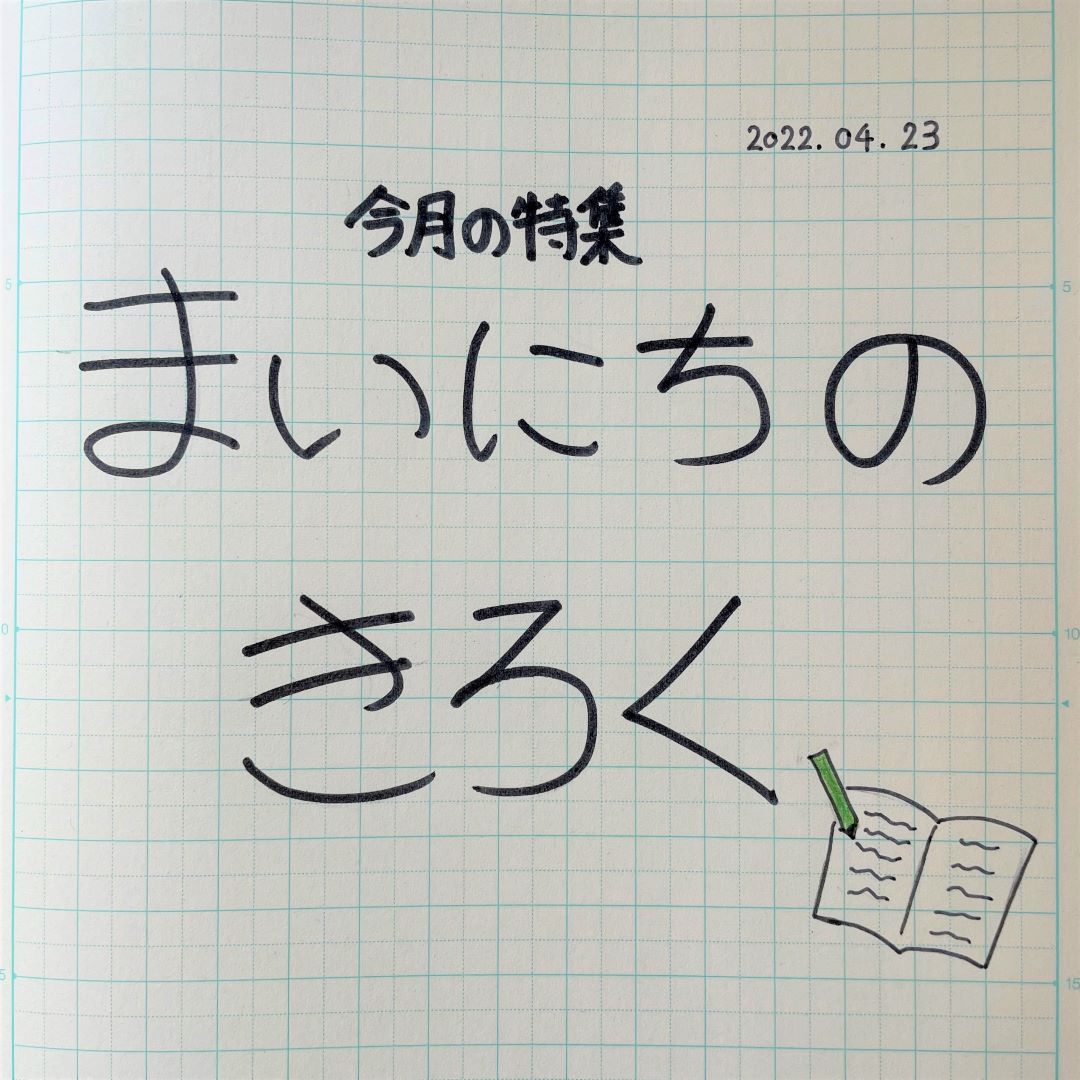 2022.04.23
今月の特集
まいにちの
きろく
5
5
10
10
15
15